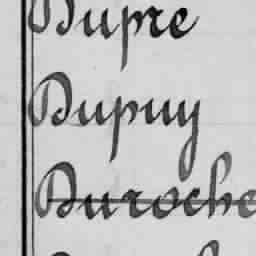 Dupre
Dupuy
Duroche